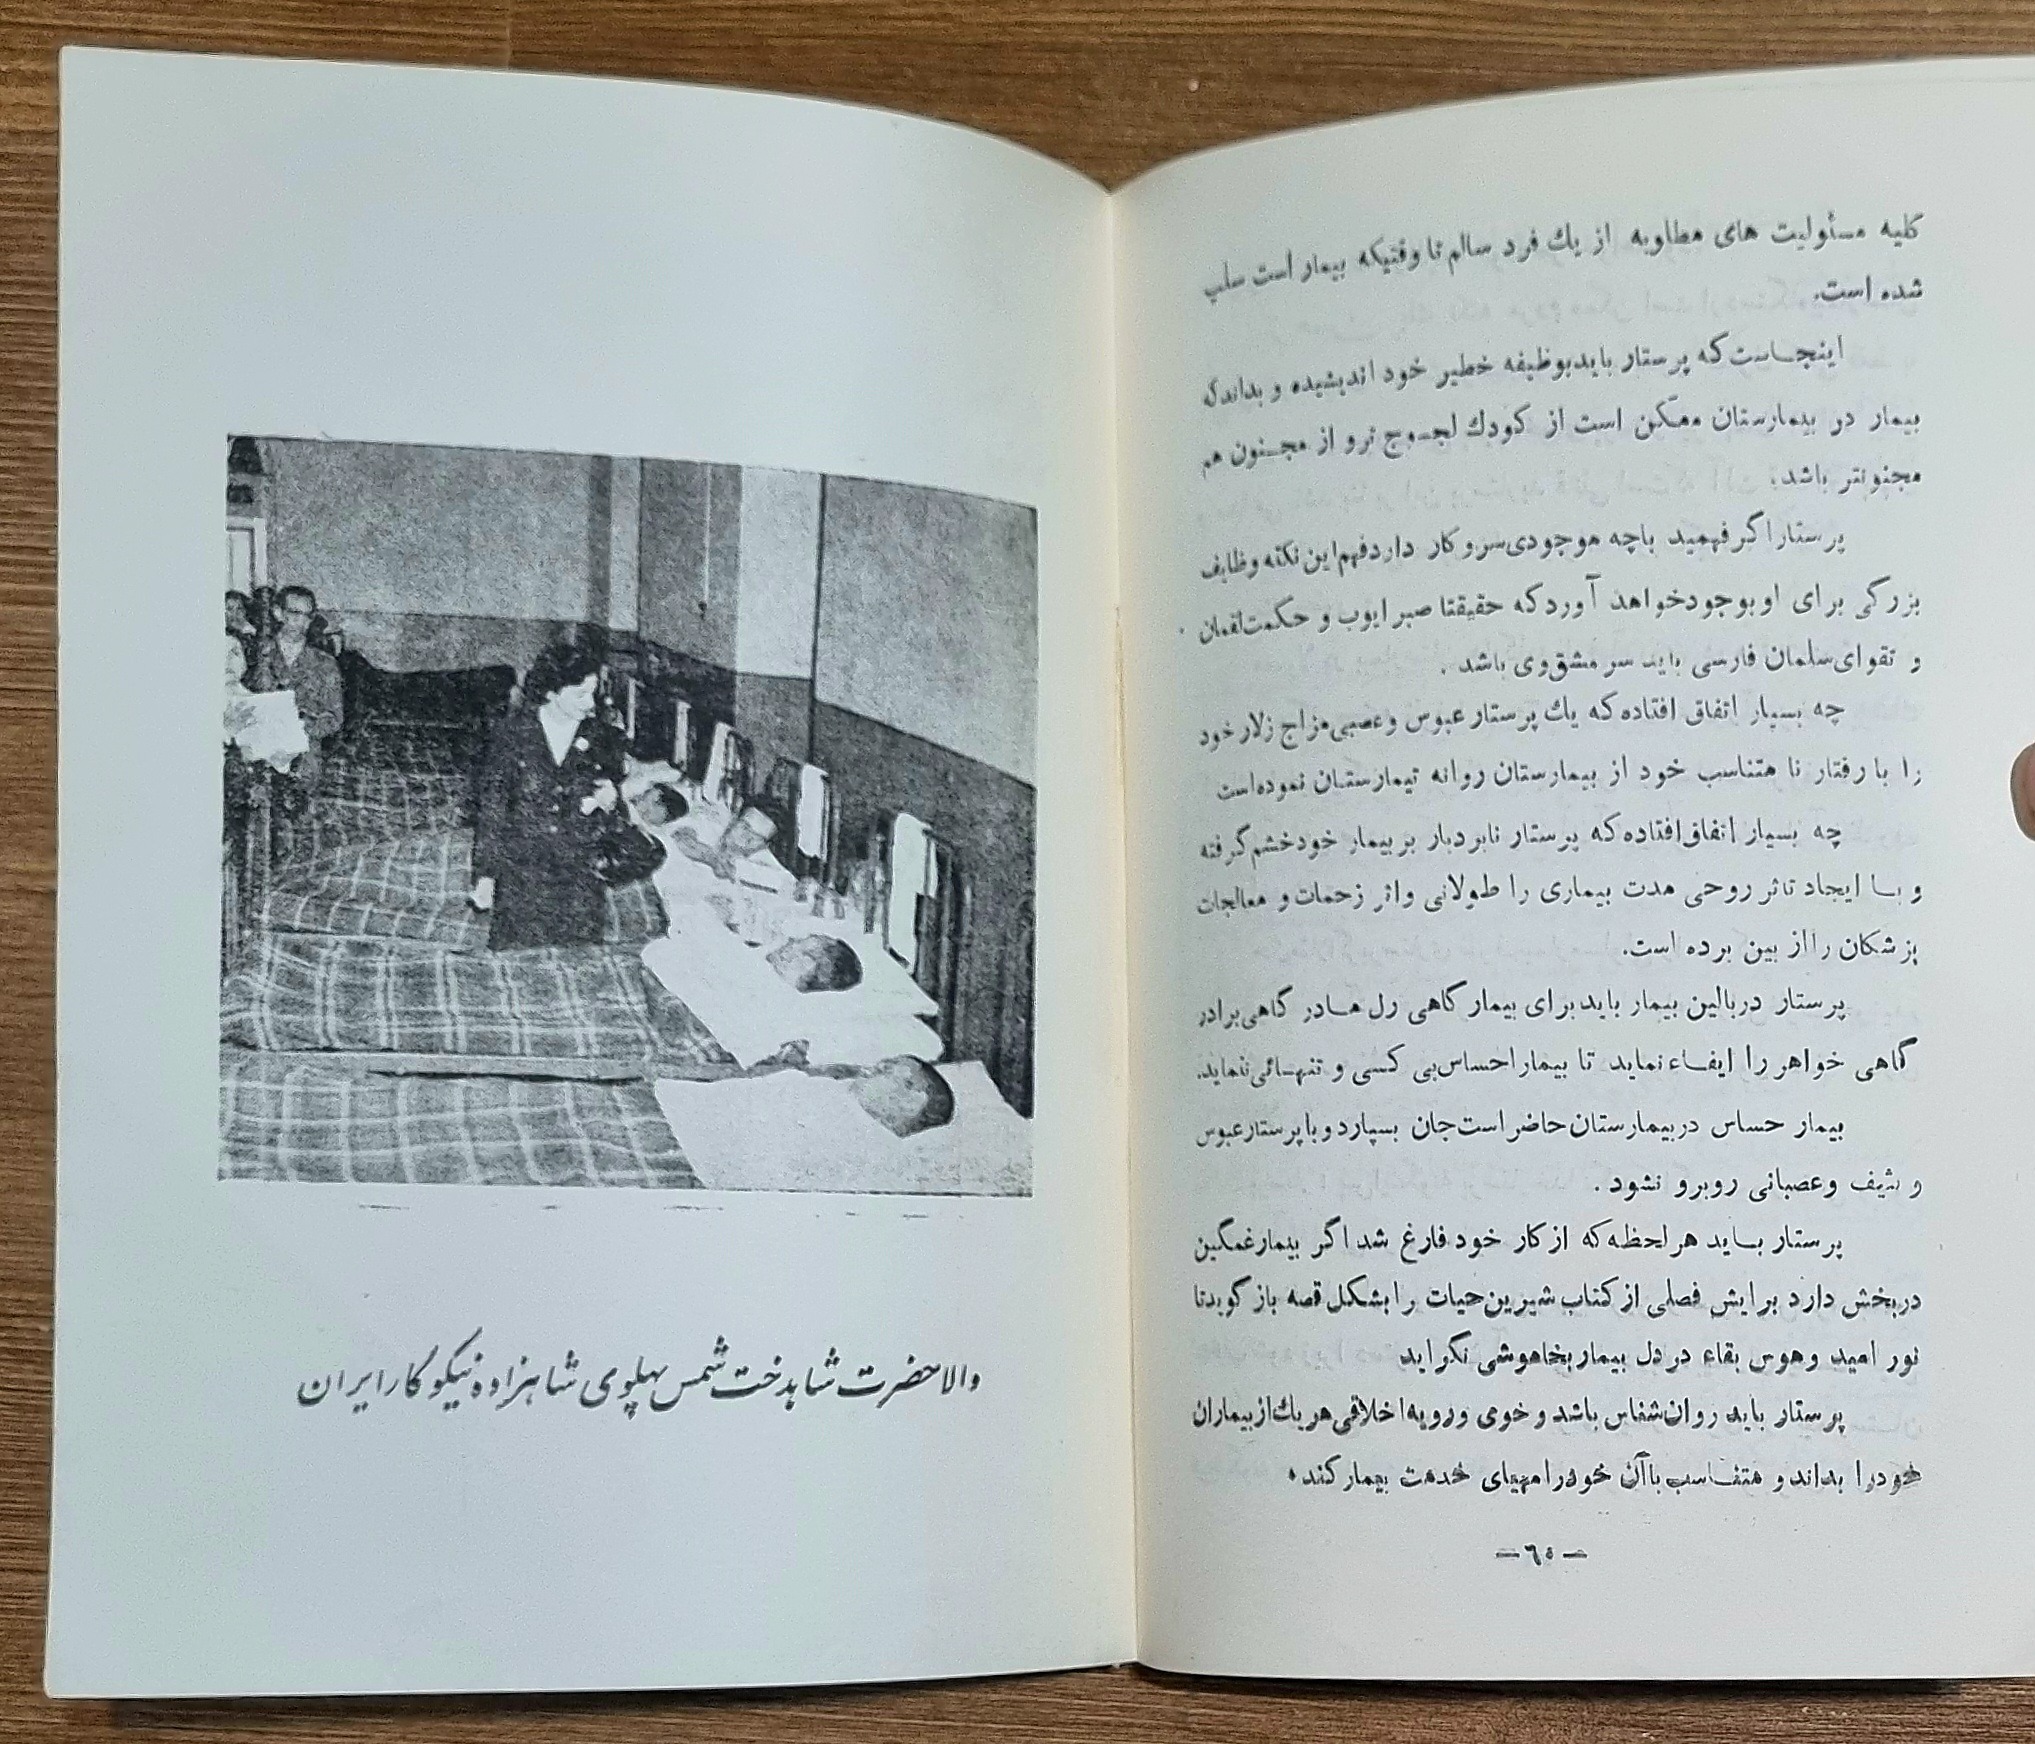 کلیه مسئولیت های مطلوبه از یك فرد سالم تا وقتیکه بیمار است سلب
شده است.
اینجاست که پرستار باید بوظیفه خطیر خود اندیشیده و بداند که
بیمار در بیمارستان ممکن است از کودك لجوج تر و از مجنون هم
مجنونتر باشد.
پرستار اگر فهمید با چه موجودی سر و کار دارد فهم این نکته وظایف
بزرگی برای او بوجود خواهد آورد که حقیقتا صبر ایوب و حکمت لقمان
و تقوای سلمان فارسی باید سر مشق وی باشد .
چه بسیار اتفاق افتاده که یك پرستار عبوس و عصبی مزاج زلار خود
را با رفتار نا متناسب خود از بیمارستان روانه تیمارستان نموده است
چه بسیار اتفاق افتاده که پرستار نابردبار بر بیمار خود خشم گرفته
و بسا ایجاد تاثر روحی مدت بیماری را طولانی و اثر زحمات و معالجات
پزشکان را از بین برده است.
پرستار در بالین بیمار باید برای بیمار گاهی رل مادر گاهی برادر
گاهی خواهر را ایفاء نماید تا بیمار احساس بی کسی و تنهائی ننماید.
بیمار حساس در بیمارستان حاضر است جان بسپارد و با پرستار عبوس
و عصبانی روبرو نشود .
پرستار بساید هر لحظه که از کار خود فارغ شد اگر بیمار غمگین
در بخش دارد برایش فصلی از کتاب شیرین حیات را بشکل قصه باز گوید تا
نور امید و هوس بقاء در دل بیمار بخاموشی نگراید
پرستار باید روان شناس باشد و خوی و رویه اخلاقی هر یك از بیماران
خود را بداند و متناسب با آن خود را مهیای خدمت بیمار کند.
— ٦٥ —
والاحضرت شاهدخت شمس پهلوی شاهزاده نیکوکار ایران